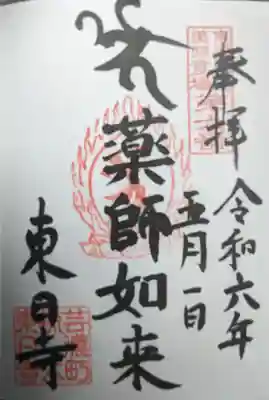 奉拝
令和六年
五月一日
薬師如来
東日寺